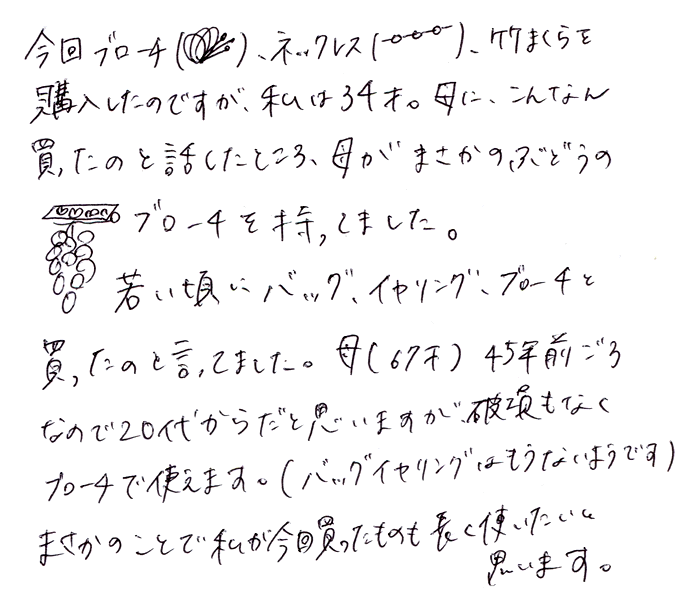 今回ブローチ( )、ネックレス( )、ケケまくらを
購入したのですが、私は34才。母に、こんなん
買ったのと話したところ、母がまさかのぶどうの
ブローチを持ってました。
若い頃にバッグ、イヤリング、ブローチと
買ったのと言ってました。母(67才)45年前ごろ
なので20代からだと思いますが、破損もなく
ブローチで使えます。(バッグイヤリングはもうないようです)
まさかのことで私が今回買ったものも長く使いたいと
思います。